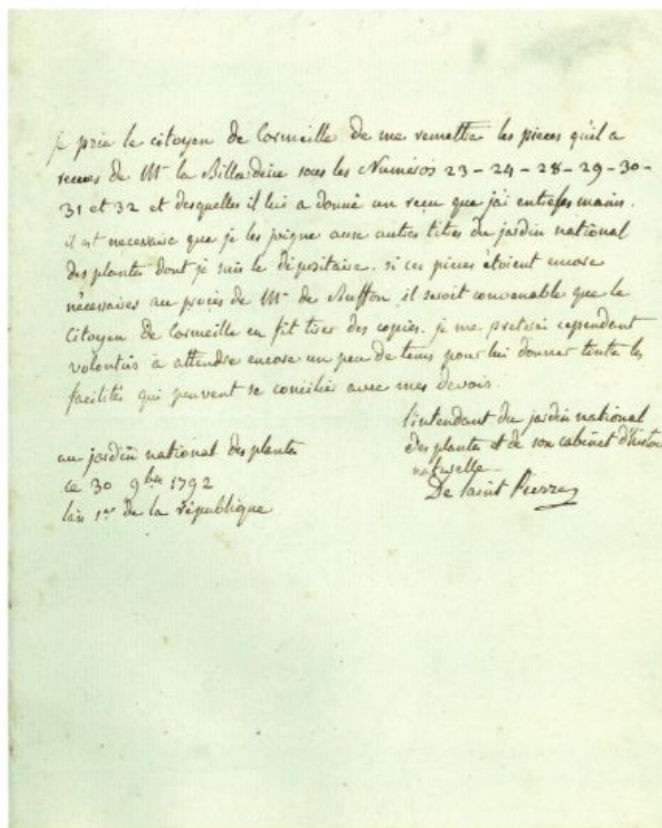 je prie le citoyen de Cormeille de me remettre les pieces qu'il a
recues de Mr la Billardrie sous les Numéros 23 - 24 - 28 - 29 - 30 -
31 et 32 et desquelles il lui a donné un reçu que j'ai entre les mains.
il est necessaire que je les joigne aux autres titres du jardin national
des plantes dont je suis le dépositaire. si ces pieces étoient encore
nécessaires au procès de Mr de Buffon, il seroit convenable que le
Citoyen de Cormeille en fit tirer des copies. je me preterai cependant
volontiers à attendre encore un peu de tems pour lui donner toute les
facilités qui peuvent se concilier avec mes devoirs.
l'intendant du jardin national
des plantes et de son cabinet d'histoire
naturelle
De Saint Pierre
au jardin national des plantes
ce 30 9bre 1792
l'an 1er de la république